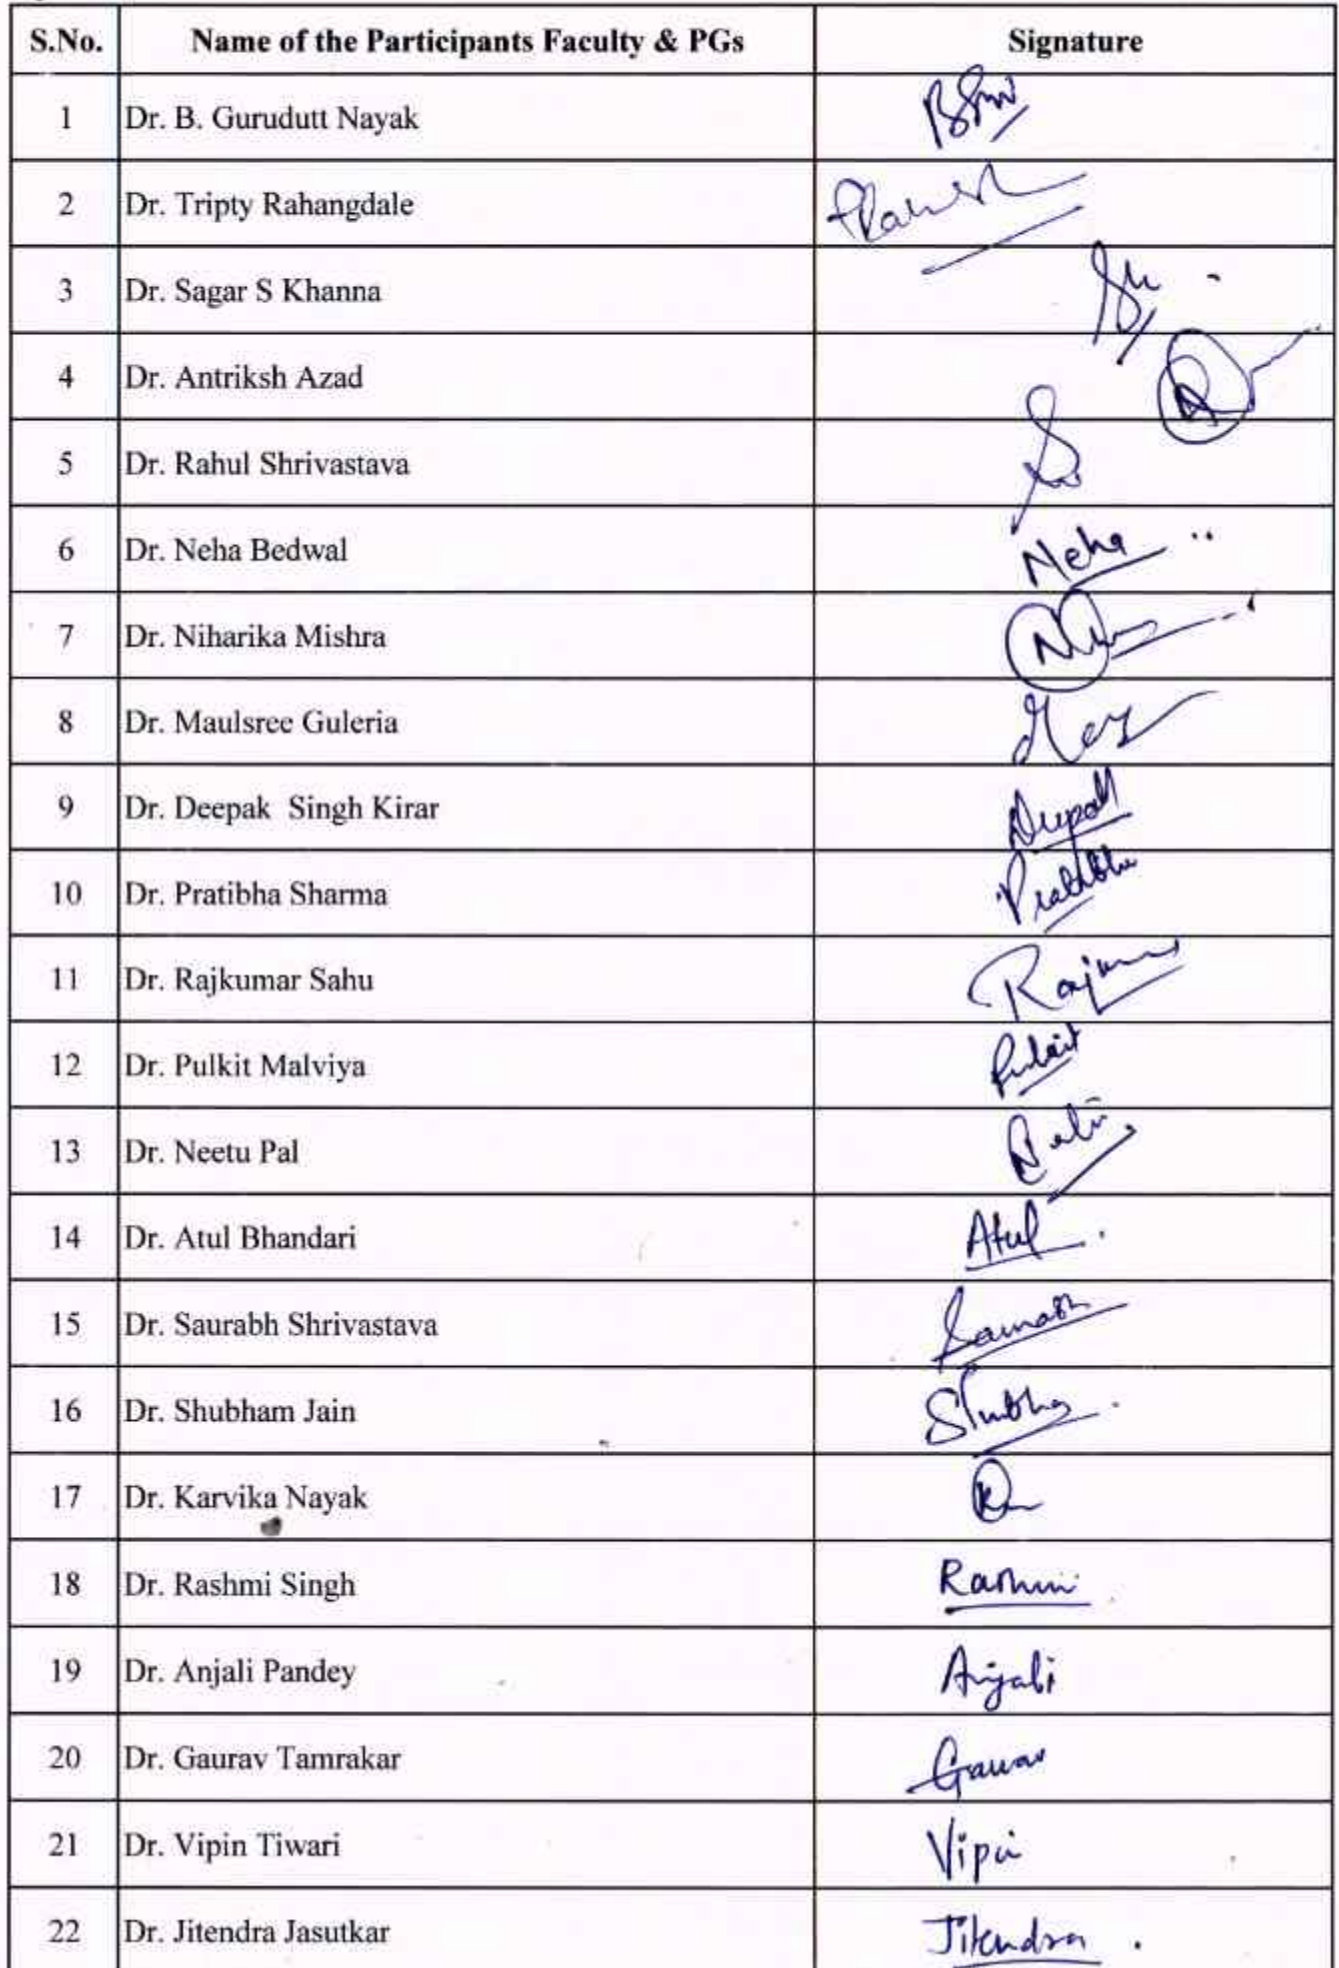 S.No. Name of the Participants Faculty & PGs Signature
1 Dr. B. Gurudutt Nayak
2 Dr. Tripty Rahangdale
3 Dr. Sagar S Khanna
4 Dr. Antriksh Azad
5 Dr. Rahul Shrivastava
6 Dr. Neha Bedwal Neha
7 Dr. Niharika Mishra
8 Dr. Maulsree Guleria
9 Dr. Deepak Singh Kirar Deepak
10 Dr. Pratibha Sharma Pratibha
11 Dr. Rajkumar Sahu
12 Dr. Pulkit Malviya Pulkit
13 Dr. Neetu Pal
14 Dr. Atul Bhandari Atul
15 Dr. Saurabh Shrivastava Saurabh
16 Dr. Shubham Jain
17 Dr. Karvika Nayak
18 Dr. Rashmi Singh Rashmi
19 Dr. Anjali Pandey Anjali
20 Dr. Gaurav Tamrakar Gaurav
21 Dr. Vipin Tiwari Vipin
22 Dr. Jitendra Jasutkar Jitendra